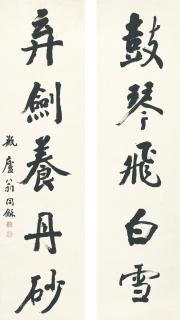 鼓琴飛白雪
弄劍養丹砂
瓶廬翁同龢